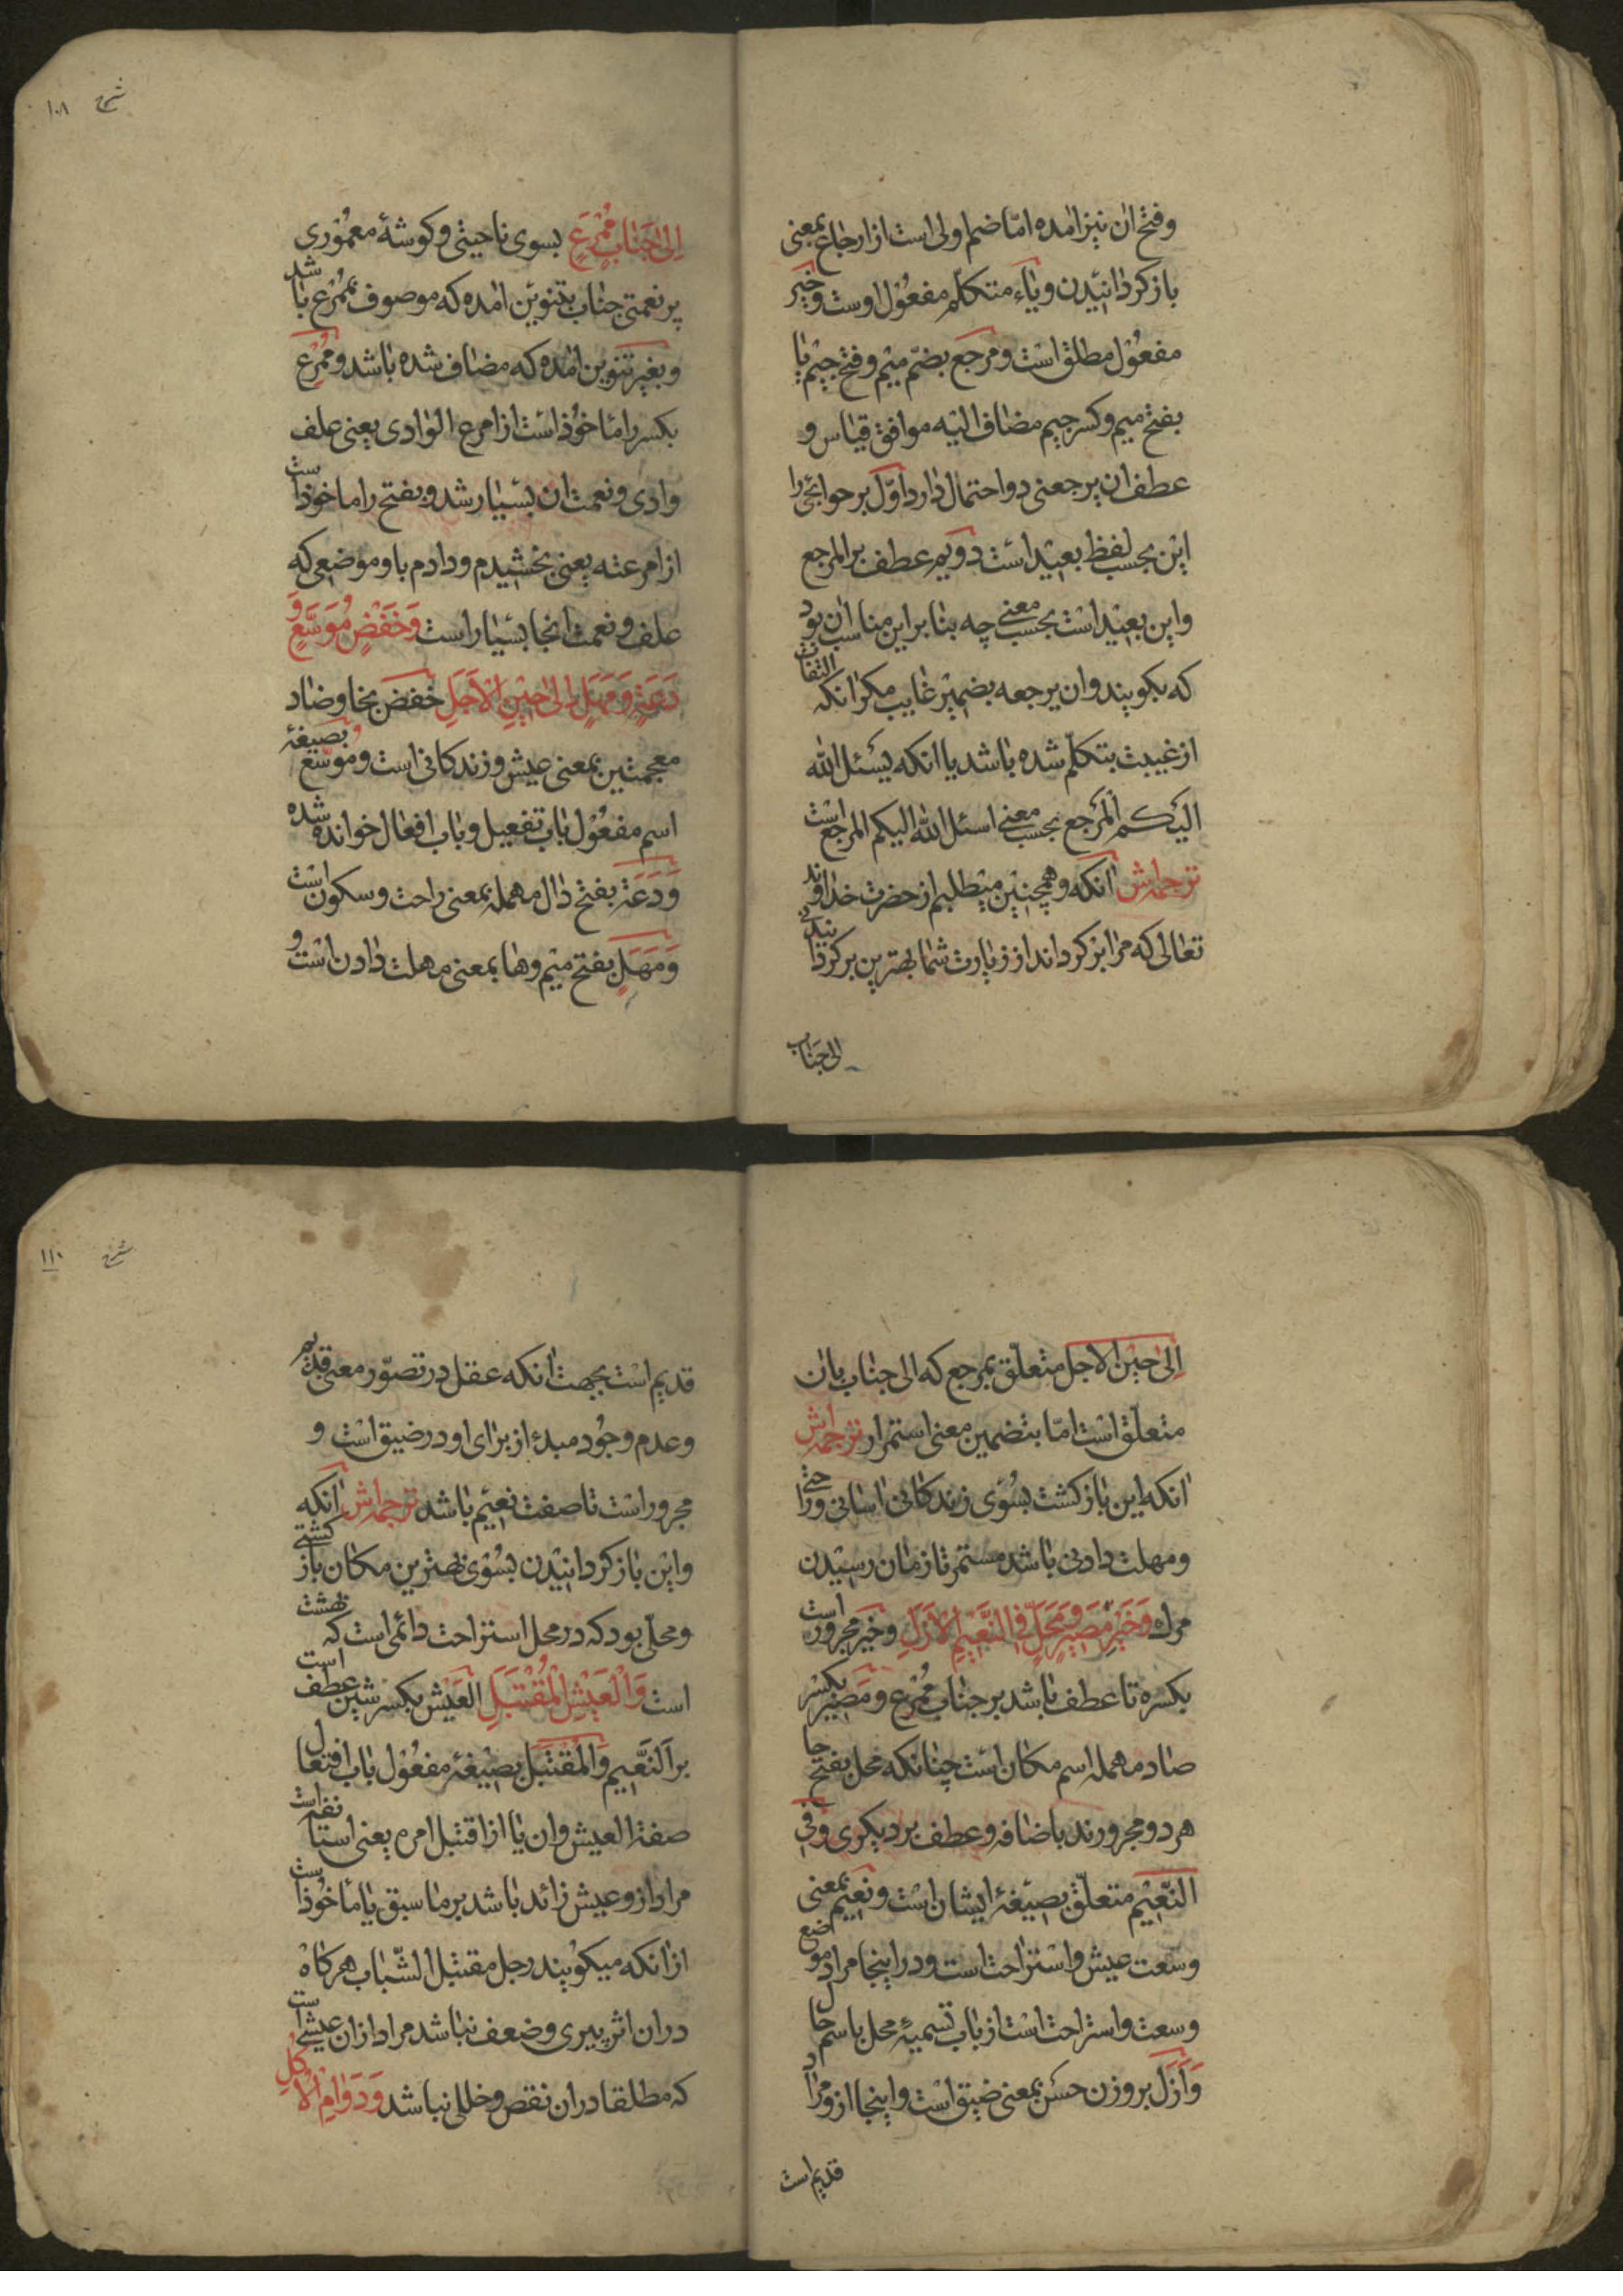 وفتح ان نیز امده امّا ضم اولی است از ارجاع بمعنی
باز کردانیدن ویاء متکلّم مفعول اوست وخیر
مفعول مطلق است ومرجع بضمّ میم وفتح جیم یا
بفتح میم وکسر جیم مضاف الیه موافق قیاس و
عطف ان یرجعنی دو احتمال دارد اوّل بر حوائجی را
این بحسب لفظ بعید است دویم عطف بر المرجع
واین بعید است بحسب معنی چه بنا بر این مناسب ان بود
که بکویند وان یرجعه بضمیر غایب مکر انکه التفات
از غیبت بتکلّم شده باشد یا انکه یسئل الله
الیکم المرجع بحسب معنی اسئل الله الیکم المرجع است
ترجمه‌اش انکه وهمچنین میطلبم از حضرت خداوند
تعالی که مرا باز کرداند از زیارت شما بهترین بر کردانیدنی
الی جناب
شرح ۱۰۸
اِلیٰ جَنَابٍ مُمْرَعٍ بسوی ناحیتی وکوشهٔ معموری
پر نعمتی جناب بتنوین امده که موصوف بممرع باشد
وبغیر تنوین امده که مضاف شده باشد وممرع
بکسر را ماخوذ است از امرع الوادی یعنی علف
وادی ونعمت ان بسیار شد وبفتح را ماخوذ است
از امرعته یعنی بخشیدم ودادم باو وموضعی که
علف ونعمت انجا بسیار است وَخَفْضٍ مُوَسَّعٍ وَ
دَعَةٍ وَمَهَلٍ اِلیٰ حِینِ الْاَجَلِ خفض بخا وضاد
معجمتین بمعنی عیش وزندکانی است وموسّع بصیغهٔ
اسم مفعول باب تفعیل وباب افعال خوانده شده
وَدَعَة بفتح دال مهمله بمعنی راحت وسکون است
وَمَهَلٍ بفتح میم وها بمعنی مهلت دادن است و
اِلیٰ حین الاجل متعلّق بمرجع که الی جناب بان
متعلّق است امّا بتضمین معنی استمرار ترجمه‌اش
انکه این باز کشت بسوی زندکانی اسانی وراحتی
ومهلت دادنی باشد مستمر تا زمان رسیدن
مرك وَخَیْرِ مَصِیرٍ وَمَحَلٍّ فِی النَّعِیمِ الْاَزَلِ وخیر مجرور است
بکسره تا عطف باشد بر جناب ممرع ومصیر بکسر
صاد مهمله اسم مکان است چنانکه محل بفتح حا
هر دو مجرورند باضافه وعطف بر دیکری وفی
النّعیم متعلّق بصیغهٔ ایشان است ونعیم بمعنی
وسعت عیش واستراحت است ودر اینجا مراد مواضع
وسعت واستراحت است از باب تسمیهٔ محل باسم حال
وَاَزَل بر وزن حسن بمعنی ضیق است واینجا ازو مراد
قدیم است
شرح ۱۱۰
قدیم است بجهت انکه عقل در تصوّر معنی قدیم
وعدم وجود مبدء از برای او در ضیق است و
مجرور است تا صفت نعیم باشد ترجمه‌اش انکه
واین باز کردانیدن بسوی بهترین مکان باز کشتی
ومحلّی بود که در محل استراحت دائمی است که بهشت
است وَالْعَیْشِ الْمُقْتَبَلِ العیش بکسر شین عطف است
بر اَلنَّعِیم وَالمُقتبَل بصیغهٔ مفعول باب افتعال
صفة العیش وان یا از اقتبل امره یعنی استانفه است
مراد ازو عیش زائد باشد بر ما سبق یا ماخوذ است
از انکه میکویند رجل مقتبل الشّباب هر کاه
دران اثر پیری وضعف نباشد مراد ازان عیشی است
که مطلقا دران نقص وخللی نباشد وَدَوٰامِ الْاُکُلِ